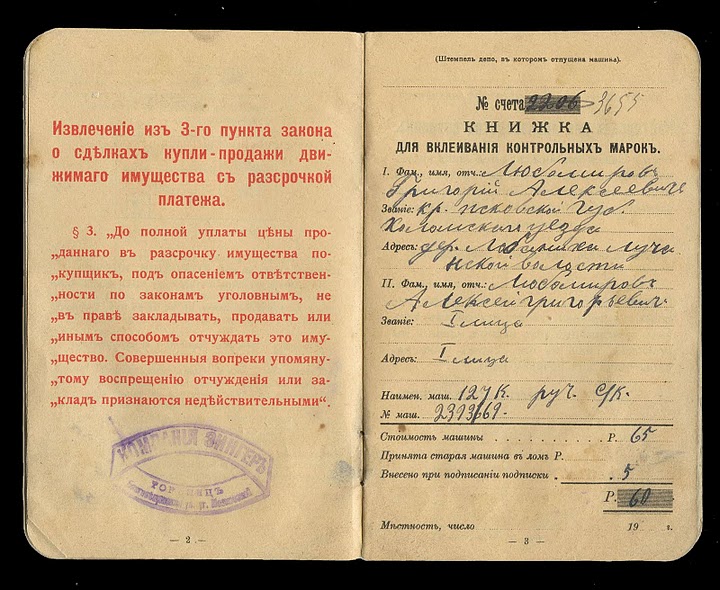 Извлеченіе изъ 3-го пункта закона
о сдѣлкахъ купли-продажи дви-
жимаго имущества съ разсрочкой
платежа.
§ 3. „До полной уплаты цѣны про-
„даннаго въ разсрочку имущества по-
„купщикъ, подъ опасеніемъ отвѣтствен-
„ности по законамъ уголовнымъ, не
„въ правѣ закладывать, продавать или
„инымъ способомъ отчуждать это иму-
„щество. Совершенныя вопреки упомяну-
„тому воспрещенію отчужденія или за-
„кладъ признаются недѣйствительными“.
КОМПАНІЯ ЗИНГЕРЪ
— 2 —
(Штемпель депо, въ которомъ отпущена машина).
№ счета 2206 3655
КНИЖКА
ДЛЯ ВКЛЕИВАНІЯ КОНТРОЛЬНЫХЪ МАРОКЪ.
I. Фам., имя, отч.: Любомировъ
Григорій Алексеевичъ
Званіе: кр. псковской губ.
Холомскаго уезда
Адресъ: дер.
волости
II. Фам., имя, отч.: Любомировъ
Алексей григорьевич
Званіе: I лица
Адресъ: I лица
Наимен. маш. 127 К. руч. С/К.
№ маш. 2393669.
Стоимость машины Р. 65
Принята старая машина въ ломъ Р.
Внесено при подписаніи подписки . . 5
Р. 60
Мѣстность, число 19 г.
— 3 —